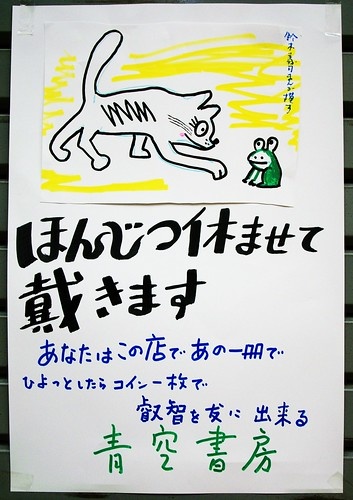 ほんじつ休ませて
戴きます
あなたはこの店であの一冊で
ひょっとしたらコイン一枚で
叡智を友に出来る
青空書房